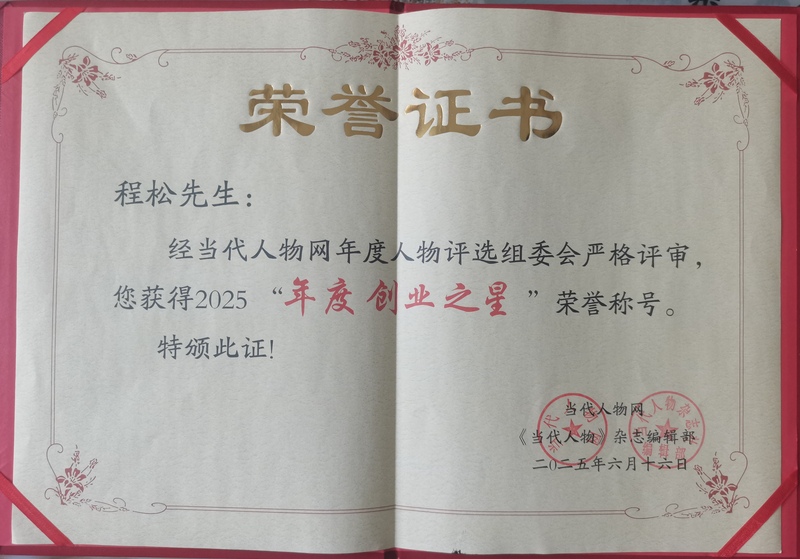 荣誉证书
程松先生：
经当代人物网年度人物评选组委会严格评审，
您获得2025“年度创业之星”荣誉称号。
特颁此证！
当代人物网
《当代人物》杂志编辑部
二〇二五年六月十六日
当代人物杂志
编辑部